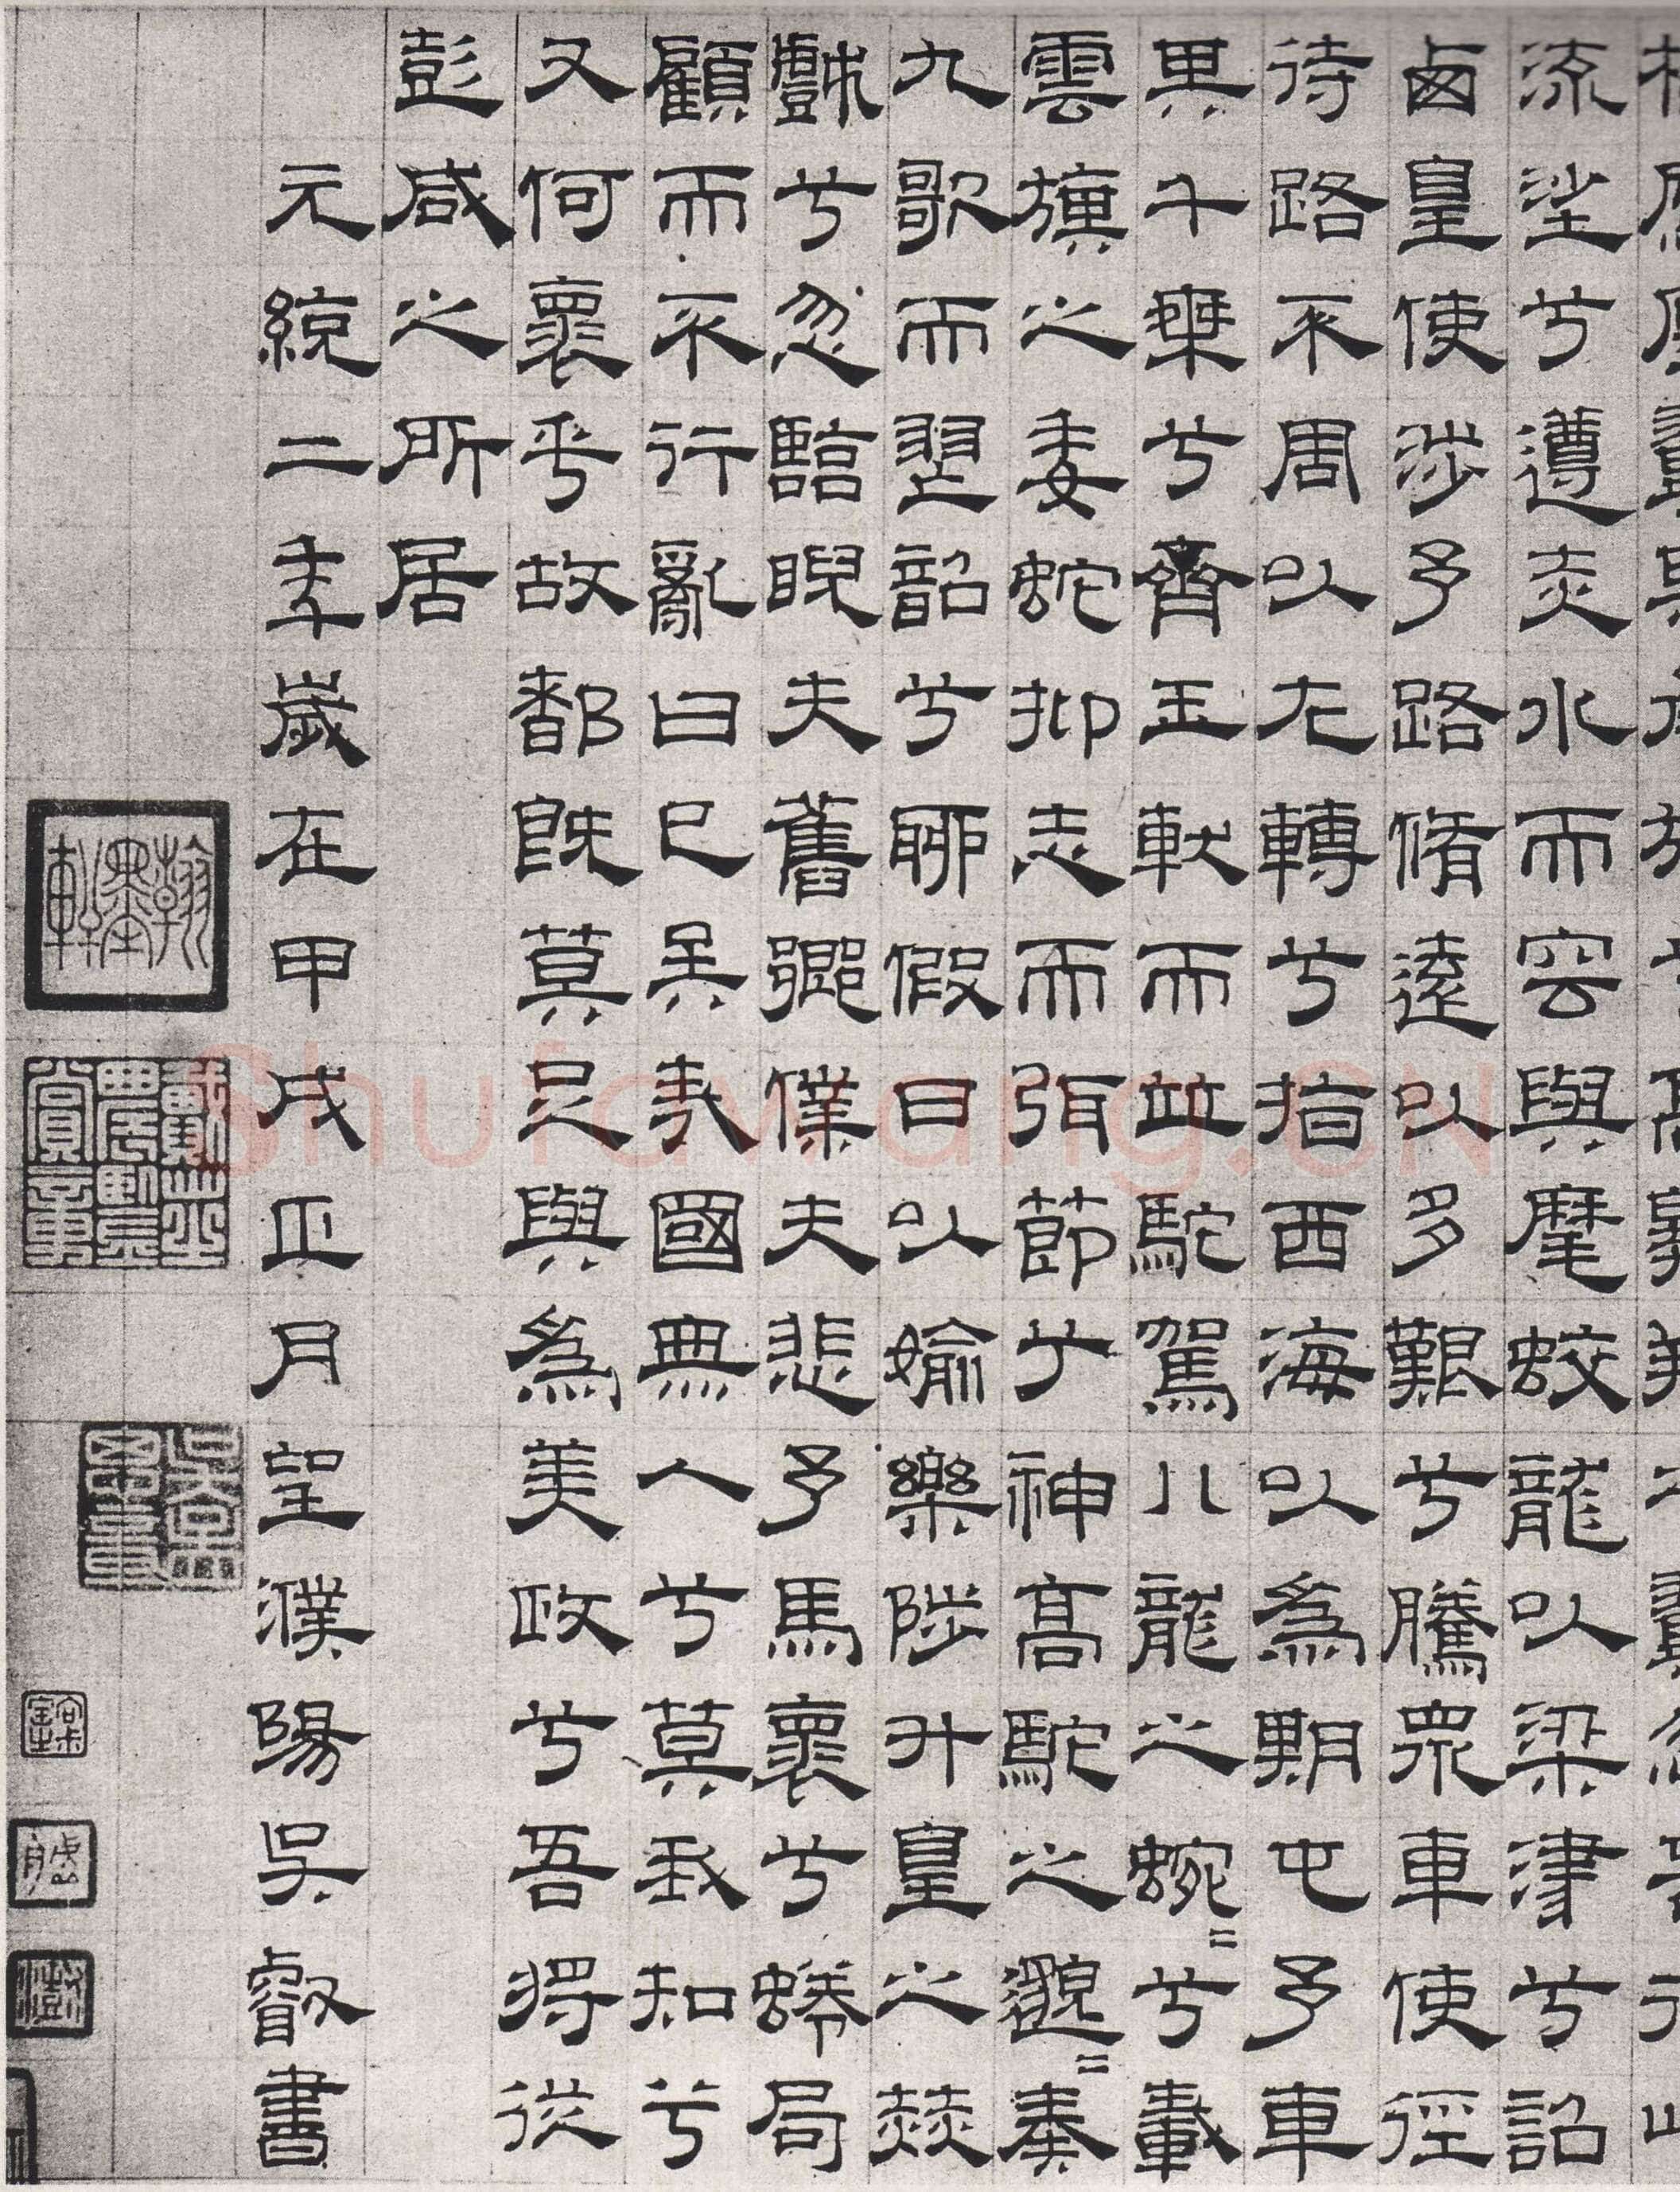 流沙兮遵赤水而容與麾蛟龍以梁津兮詔
卥皇使涉予路脩遠以多艱兮騰衆車使徑
待路不周以左轉兮指西海以為期屯予車
其千乘兮齊玉軑而並馳駕八龍之蜿=兮載
雲旗之委蛇抑志而弭節兮神高馳之邈=奏
九歌而舞韶兮聊假日以媮樂陟升皇之赫
戲兮忽臨睨夫舊鄉僕夫悲予馬懷兮蜷局
顧而不行亂曰已矣哉國無人兮莫我知兮
又何懷乎故都既莫足與為美政兮吾將從
彭咸之所居
元統二年歲在甲戌正月望濮陽吳叡書
翰墨軒
Shufawang.CN